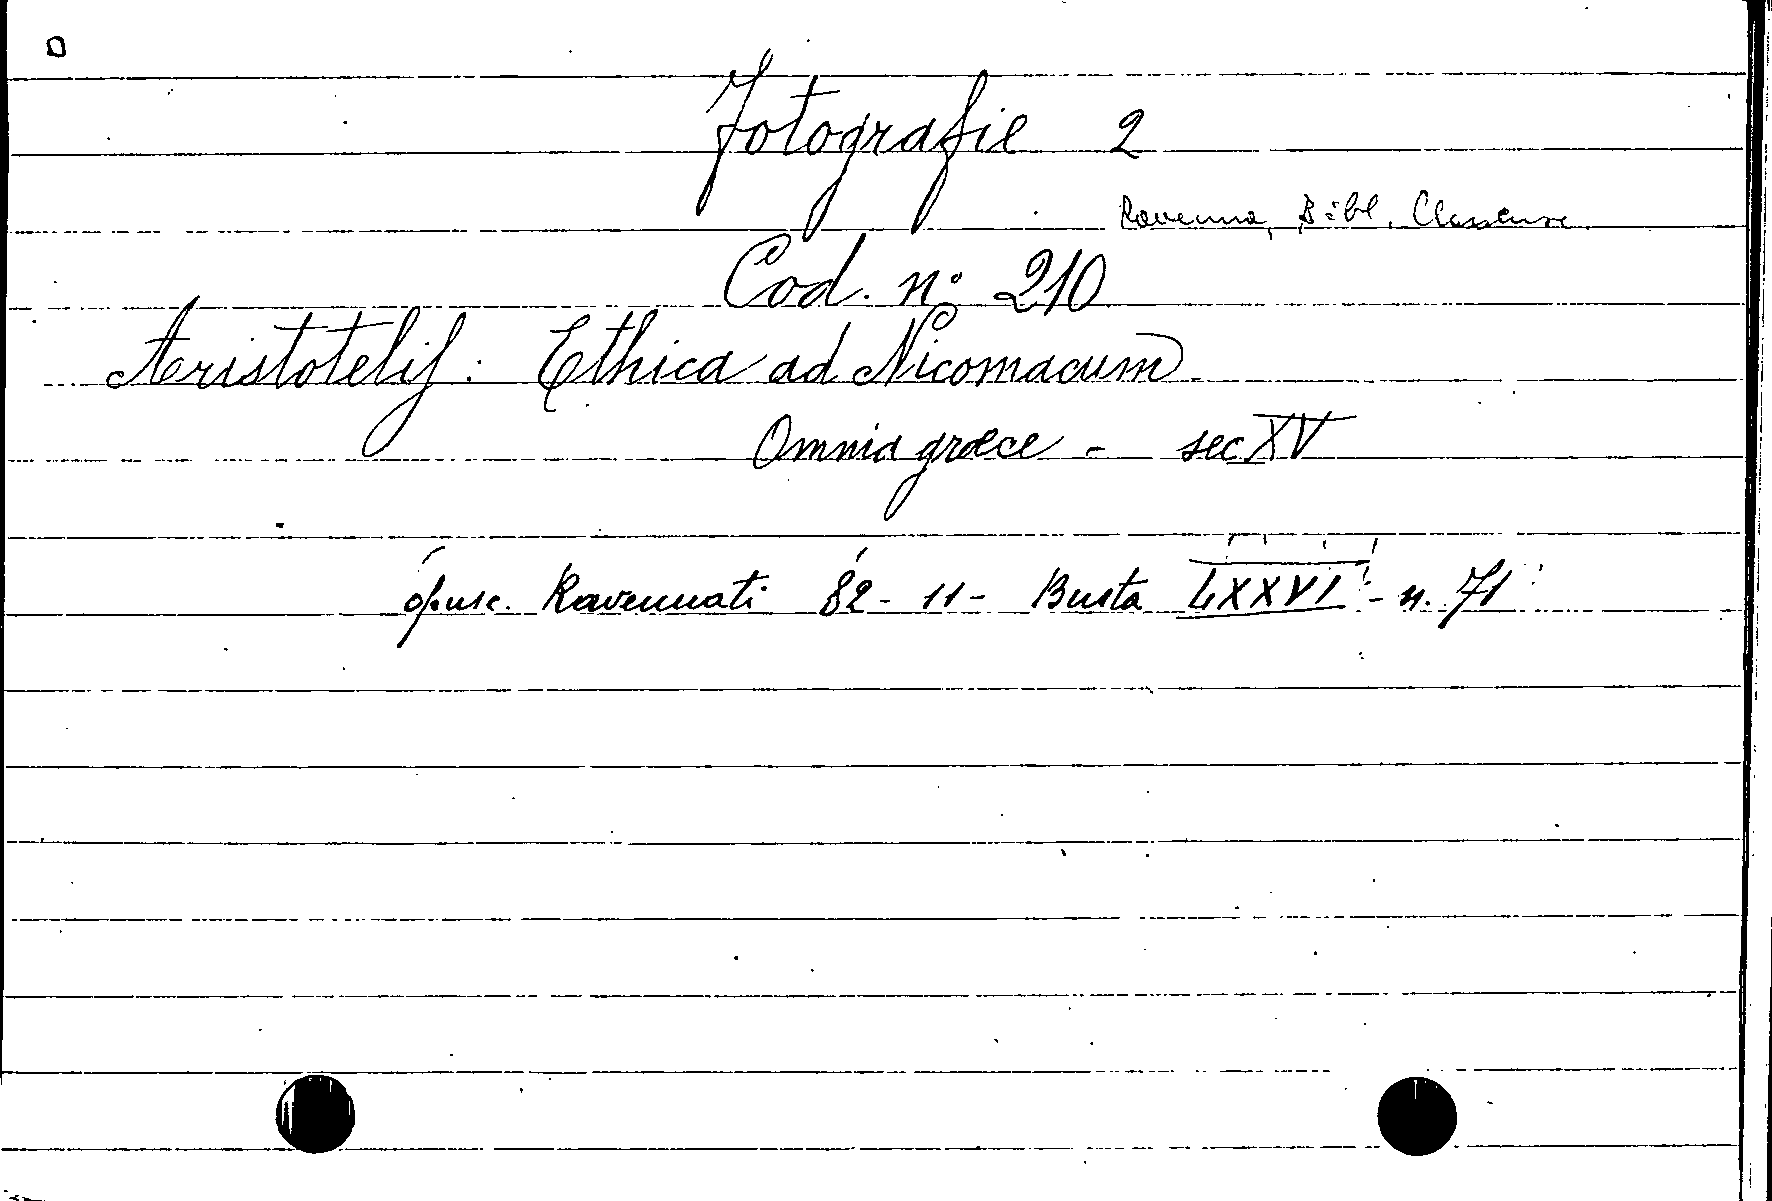 Fotografie 2
Ravenna, Bibl. Classense
Cod. n° 210
Aristotelis: Ethica ad Nicomacum
Omnia græce - sec XV
Opusc. Ravennati 82-11- Busta LXXVI - n. 71